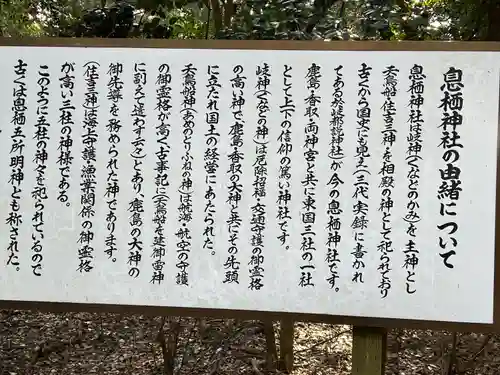 息栖神社の由緒について
息栖神社は岐神(くなどのかみ)を主神とし
天鳥船・住吉三神を相殿の神として祀られており
古くから国史にも見え(三代実録に書かれ
てある於岐都説神社)が今の息栖神社です。
鹿島・香取・両神宮と共に東国三社の一社
として上下の信仰の篤い神社です。
岐神(くなどの神)は厄除招福・交通守護の御霊格
の高い神で、鹿島・香取の大神と共にその先頭
に立たれ国土の経営にあたられた。
天鳥船神(あめのとりふねの神)は航海・航空の守護
の御霊格が高く古事記に(天鳥船を建御雷神
に副えて遣わす云々)とあり、鹿島の大神の
御先導を務められた神であります。
(住吉三神)は海上守護・漁業関係の御霊格
が高い三柱の神様である。
このように五柱の神々を祀られているので
古くは息栖五所明神とも称された。